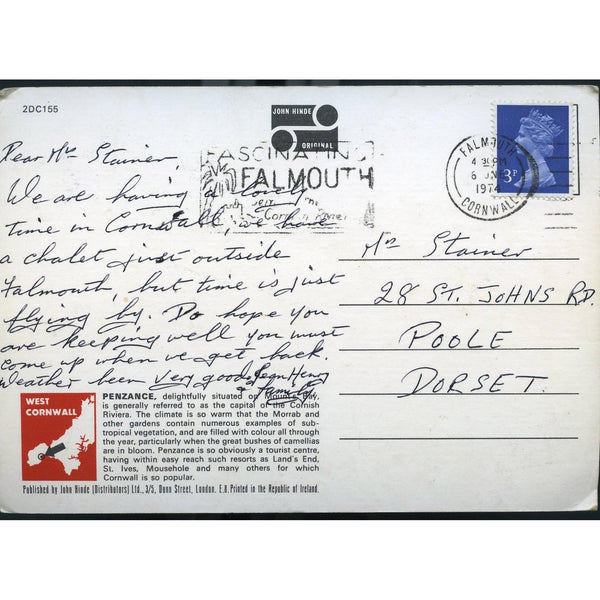 2DC155
JOHN HINDE
ORIGINAL
FASCINATING
FALMOUTH
Cornish Riviera
FALMOUTH
4 30 PM
6 JNE
1974
CORNWALL
3P
Dear Mrs Stainer,
We are having a lovely
time in Cornwall, we have
a chalet just outside
Falmouth but time is just
flying by. Do hope you
are keeping well you must
come up when we get back.
Weather been very good. Jean Henry
& Family
Mrs Stainer
28 ST. JOHNS RD.
POOLE
DORSET.
WEST
CORNWALL
PENZANCE, delightfully situated on Mount's Bay,
is generally referred to as the capital of the Cornish
Riviera. The climate is so warm that the Morrab and
other gardens contain numerous examples of sub-
tropical vegetation, and are filled with colour all through
the year, particularly when the great bushes of camellias
are in bloom. Penzance is so obviously a tourist centre,
having within easy reach such resorts as Land's End,
St. Ives, Mousehole and many others for which
Cornwall is so popular.
Published by John Hinde (Distributors) Ltd., 3/5, Dunn Street, London. E.8. Printed in the Republic of Ireland.